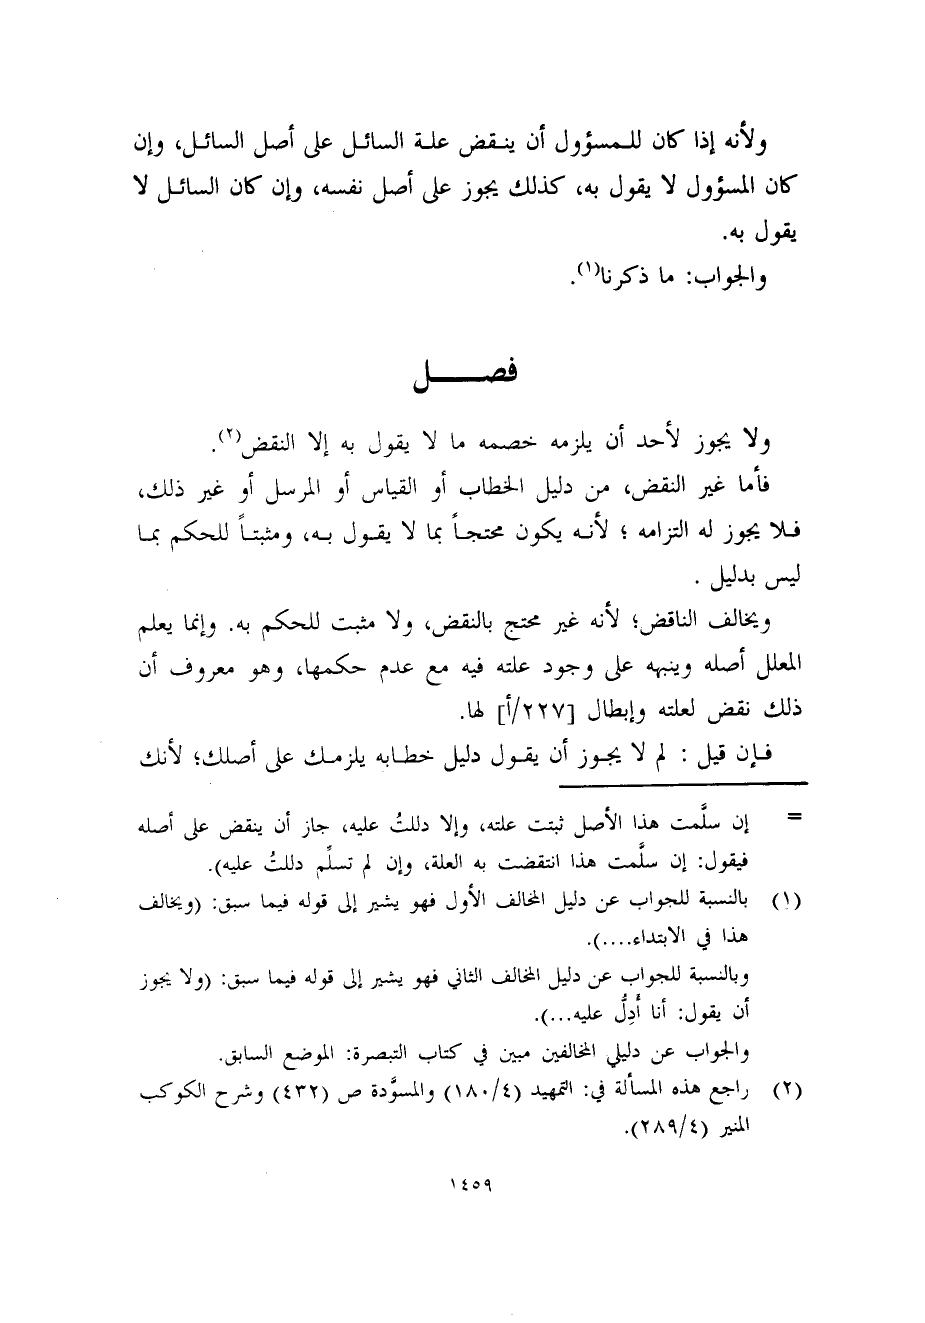 ولأنه إذا كان للمسؤول أن ينقض علة السائل على أصل السائل، وإن
كان المسؤول لا يقول به، كذلك يجوز على أصل نفسه، وإن كان السائل لا
يقول به.
والجواب: ما ذكرنا(١).
فصل
ولا يجوز لأحد أن يلزمه خصمه ما لا يقول به إلا النقض(٢).
فأما غير النقض، من دليل الخطاب أو القياس أو المرسل أو غير ذلك،
فلا يجوز له التزامه ؛ لأنه يكون محتجاً بما لا يقول به، ومثبتاً للحكم بما
ليس بدليل .
ويخالف الناقض؛ لأنه غير محتج بالنقض، ولا مثبت للحكم به. وإنما يعلم
المعلل أصله وينبهه على وجود علته فيه مع عدم حكمها، وهو معروف أن
ذلك نقض لعلته وإبطال [٢٢٧/أ] لها.
فإن قيل : لم لا يجوز أن يقول دليل خطابه يلزمك على أصلك؛ لأنك
= إن سلَّمت هذا الأصل ثبتت علته، وإلا دللتُ عليه، جاز أن ينقض على أصله
فيقول: إن سلَّمت هذا انتقضت به العلة، وإن لم تسلِّم دللتُ عليه).
(١) بالنسبة للجواب عن دليل المخالف الأول فهو يشير إلى قوله فيما سبق: (ويخالف
هذا في الابتداء....).
وبالنسبة للجواب عن دليل المخالف الثاني فهو يشير إلى قوله فيما سبق: (ولا يجوز
أن يقول: أنا أَدِلُّ عليه...).
والجواب عن دليلي المخالفين مبين في كتاب التبصرة: الموضع السابق.
(٢) راجع هذه المسألة في: التمهيد (١٨٠/٤) والمسوَّدة ص (٤٣٢) وشرح الكوكب
المنير (٢٨٩/٤).
١٤٥٩